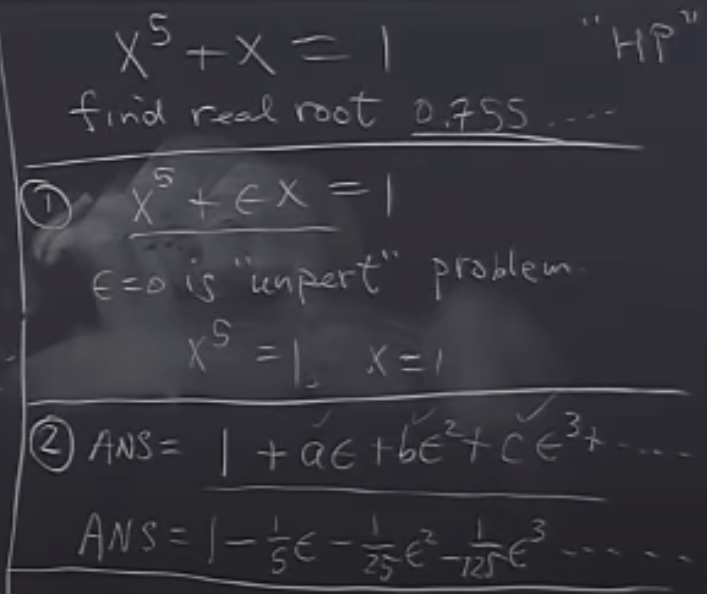 x⁵ + x = 1 "HP"
find real root 0.755 ....
① x⁵ + ϵx = 1
ϵ=0 is "unpert" problem.
x⁵ = 1, x = 1
② ANS = 1 + aϵ + bϵ² + cϵ³ + .....
ANS = 1 - 1/5 ϵ - 1/25 ϵ² - 1/125 ϵ³ ......